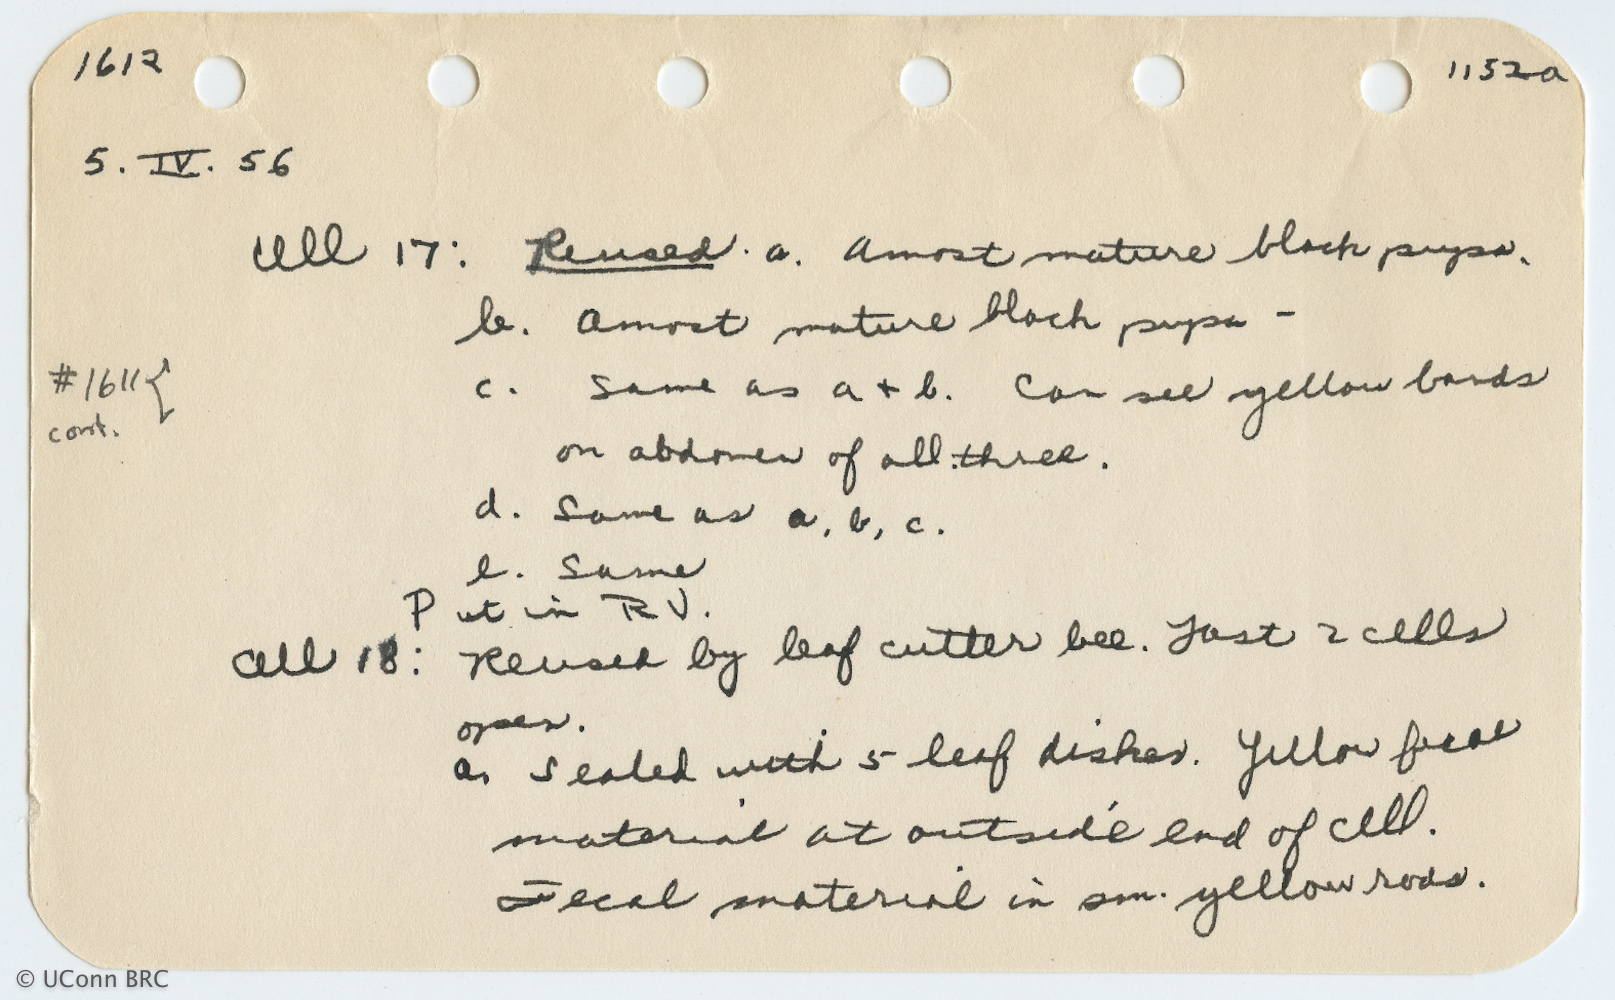 1612 1152a
5. IV. 56
Cell 17: Reused. a. Amost mature black pupa.
b. Amost mature black pupa -
c. Same as a + b. Can see yellow bands
#1611 {
cont.
on abdomen of all three.
d. Same as a, b, c.
e. Same
Put in RV.
Cell 18: Reused by leaf cutter bee. Last 2 cells
open.
a. Sealed with 5 leaf diskes. Yellow fecal
material at outside end of cell.
Fecal material in sm. yellow rods.
© UConn BRC